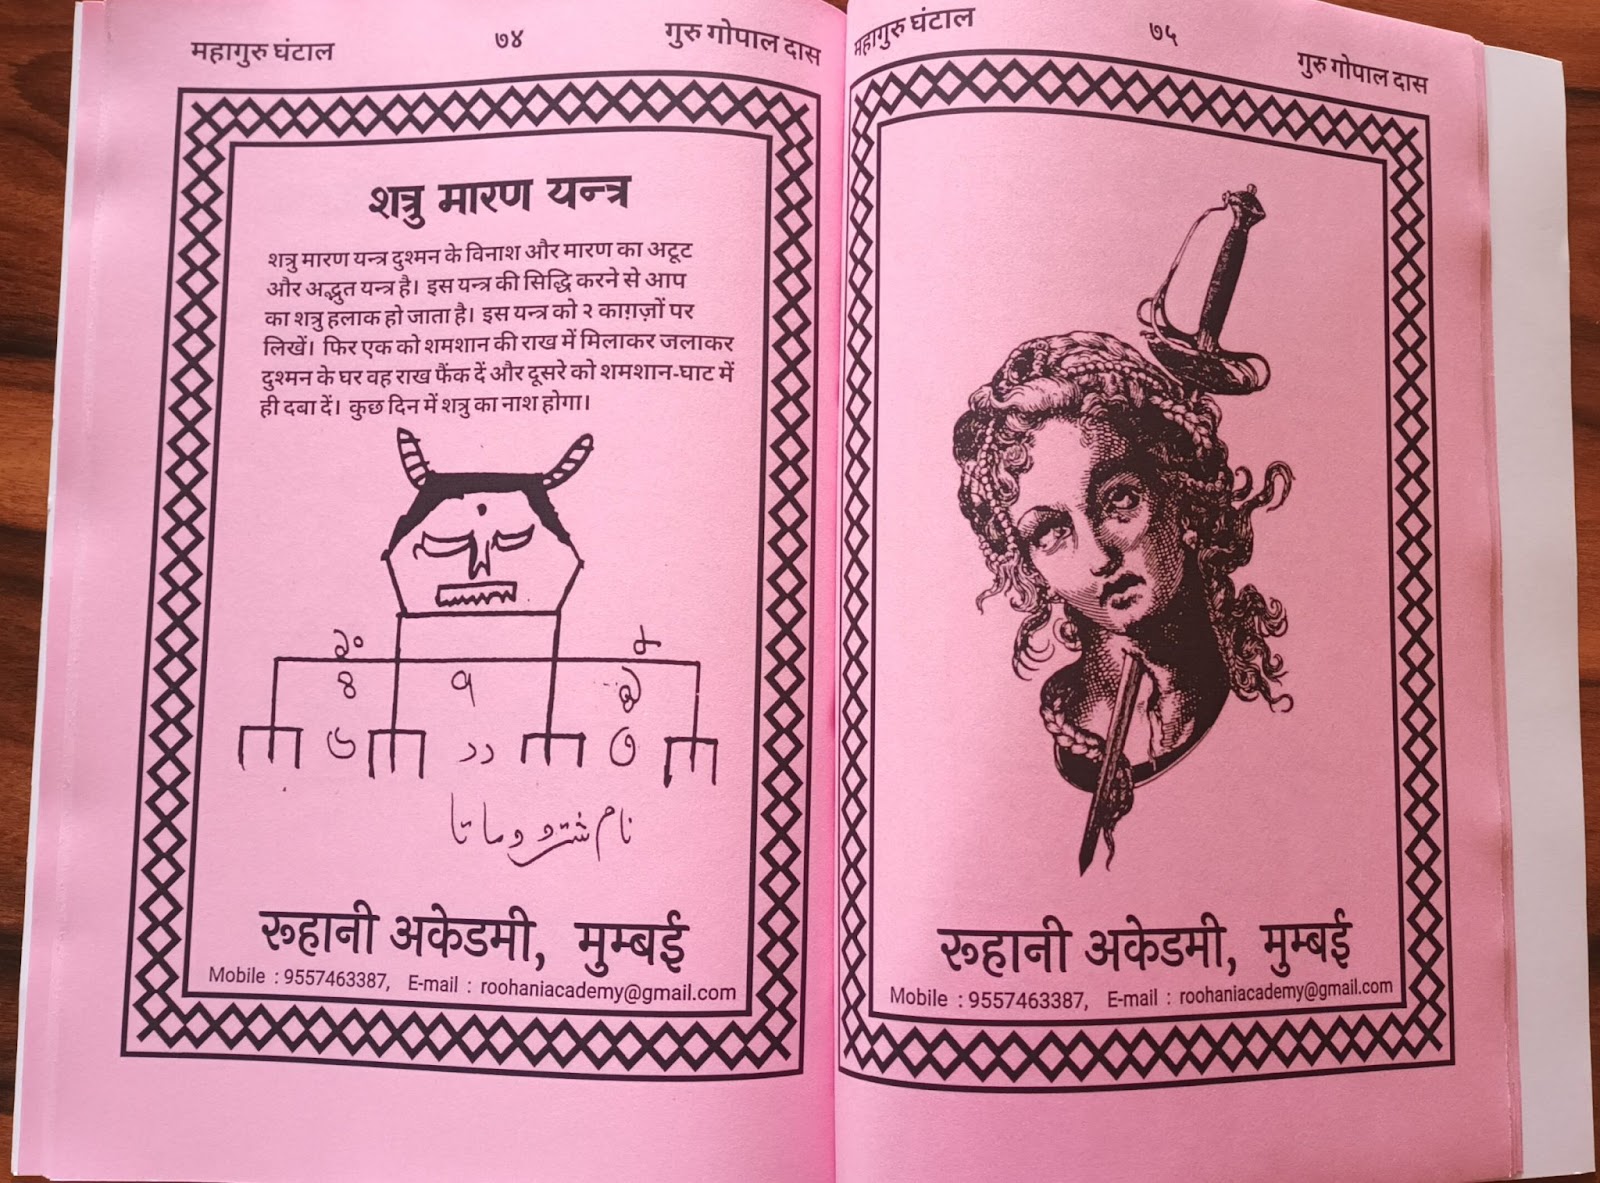 महागुरु घंटाल ७४ गुरु गोपाल दास
शत्रु मारण यन्त्र
शत्रु मारण यन्त्र दुश्मन के विनाश और मारण का अटूट
और अद्भुत यन्त्र है। इस यन्त्र की सिद्धि करने से आप
का शत्रु हलाक हो जाता है। इस यन्त्र को २ काग़ज़ों पर
लिखें। फिर एक को शमशान की राख में मिलाकर जलाकर
दुश्मन के घर वह राख फैंक दें और दूसरे को शमशान-घाट में
ही दबा दें। कुछ दिन में शत्रु का नाश होगा।
रूहानी अकेडमी, मुम्बई
Mobile : 9557463387, E-mail : roohaniacademy@gmail.com
महागुरु घंटाल ७५ गुरु गोपाल दास
रूहानी अकेडमी, मुम्बई
Mobile : 9557463387, E-mail : roohaniacademy@gmail.com